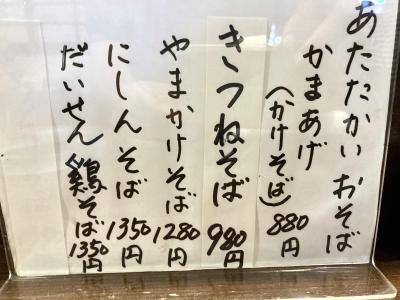 あたたかいおそば
かまあげ
(かけそば) 880円
きつねそば 980円
やまかけそば 1280円
にしんそば 1350円
だいせん鶏そば 1350円